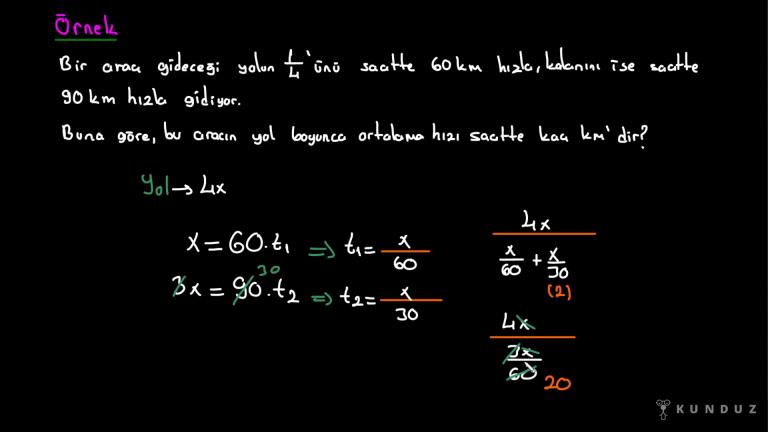 Örnek
Bir araç gideceği yolun 1/4'ünü saatte 60 km hızla, kalanını ise saatte
90 km hızla gidiyor.
Buna göre, bu aracın yol boyunca ortalama hızı saatte kaç km'dir?
Yol → 4x
x = 60.t₁ ⇒ t₁ = x/60
30
3x = 90.t₂ ⇒ t₂ = x/30
4x
x/60 + x/30
(2)
4x
3x/60 20
KUNDUZ